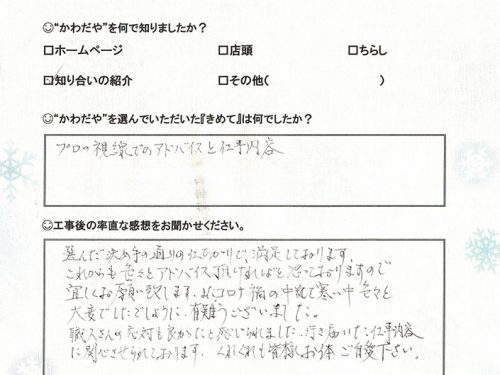 ☺“かわだや”を何で知りましたか？
□ホームページ □店頭 □ちらし
☑知り合いの紹介 □その他( )
☺“かわだや”を選んでいただいた『きめて』は何でしたか？
プロの視線でのアドバイスと仕事内容
☺工事後の率直な感想をお聞かせください。
選んだ決め手の通りの仕上がりで、満足しております。
これからも色々とアドバイス頂ければと思っておりますので
宜しくお願い致します。コロナ禍の中、寒い中色々と
大変でしたでしょうに、有難うございました。
職人さんの応対も良かったと感じられました。行き届いた仕事内容
に関心させられております。くれぐれも皆様お体ご自愛下さい。